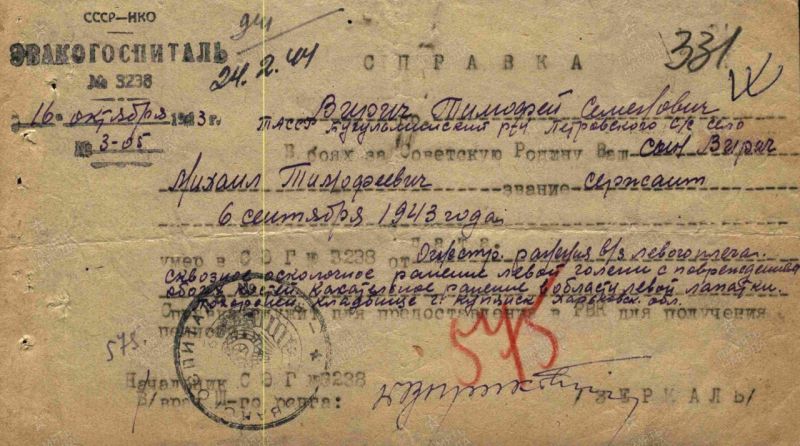 СССР—НКО
ЭВАКОГОСПИТАЛЬ
№ 3238
24.2.44
СПРАВКА
331
16 октября 1943 г.
№ 3-05
Вирич Тимофей Семенович
ТАССР Бугульминский р-н Петровского с/с село
В боях за Советскую Родину Ваш сын Вирич
Михаил Тимофеевич звание сержант
6 сентября 1943 года
умер в СЭГ № 3238 от Огнестр. ранения в/з левого плеча.
сквозное осколочное ранение левой голени с повреждением
обоих костей касательное ранение в области левой лопатки.
Похоронен, кладбище г. Купянск Харьковск. обл.
для предоставления в РВК для получения
575.
575
Начальник СЭГ № 3238
В/врач II-го ранга:
/ЗЕРКАЛЬ/